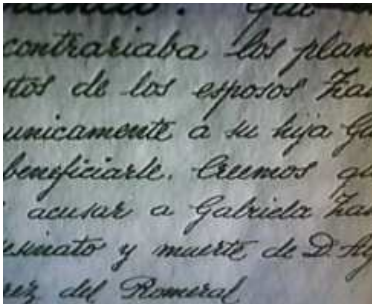 contrariaba los plan
tos de los esposos Za
unicamente a su hija Ga
beneficiarle. Creemos qu
acusar a Gabriela Za
esinato y muerte de D. Ag
rez del Romeral